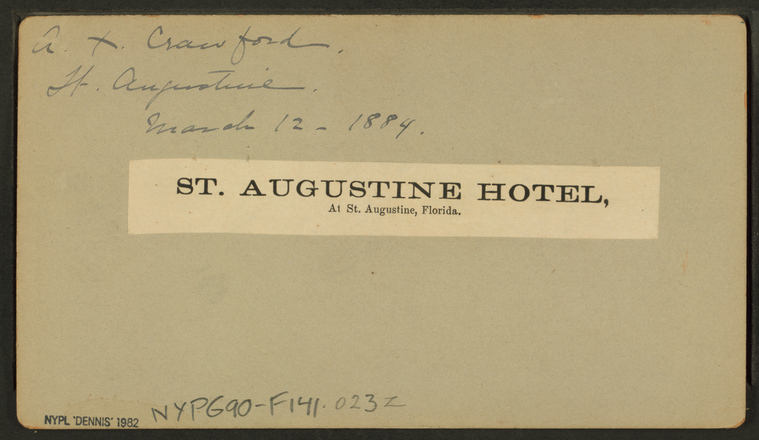 A. X. Crawford.
St. Augustine.
March 12 - 1884.
ST. AUGUSTINE HOTEL,
At St. Augustine, Florida.
NYPL 'DENNIS' 1982
NYPG90-F141.023Z